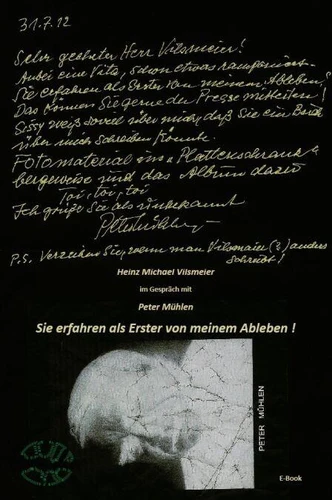 31.7.12
Sehr geehrter Herr Vilsmeier!
Anbei eine Vita, schon etwas
Sie erfahren als Erster von meinem Ableben!
Das können Sie gerne der Presse mitteilen!
Sissy weiß soviel über mich, daß Sie ein Buch
über mich schreiben könnte.
Fotomaterial im Plattenschrank
bergeweise und das Album dazu
Toi, toi, toi
Ich grüße Sie als unbekannt
P.S. Verzeihen Sie, wenn man Vilsmaier (?) anders
schreibt!
Heinz Michael Vilsmeier
im Gespräch mit
Peter Mühlen
Sie erfahren als Erster von meinem Ableben !
PETER MÜHLEN
E-Book